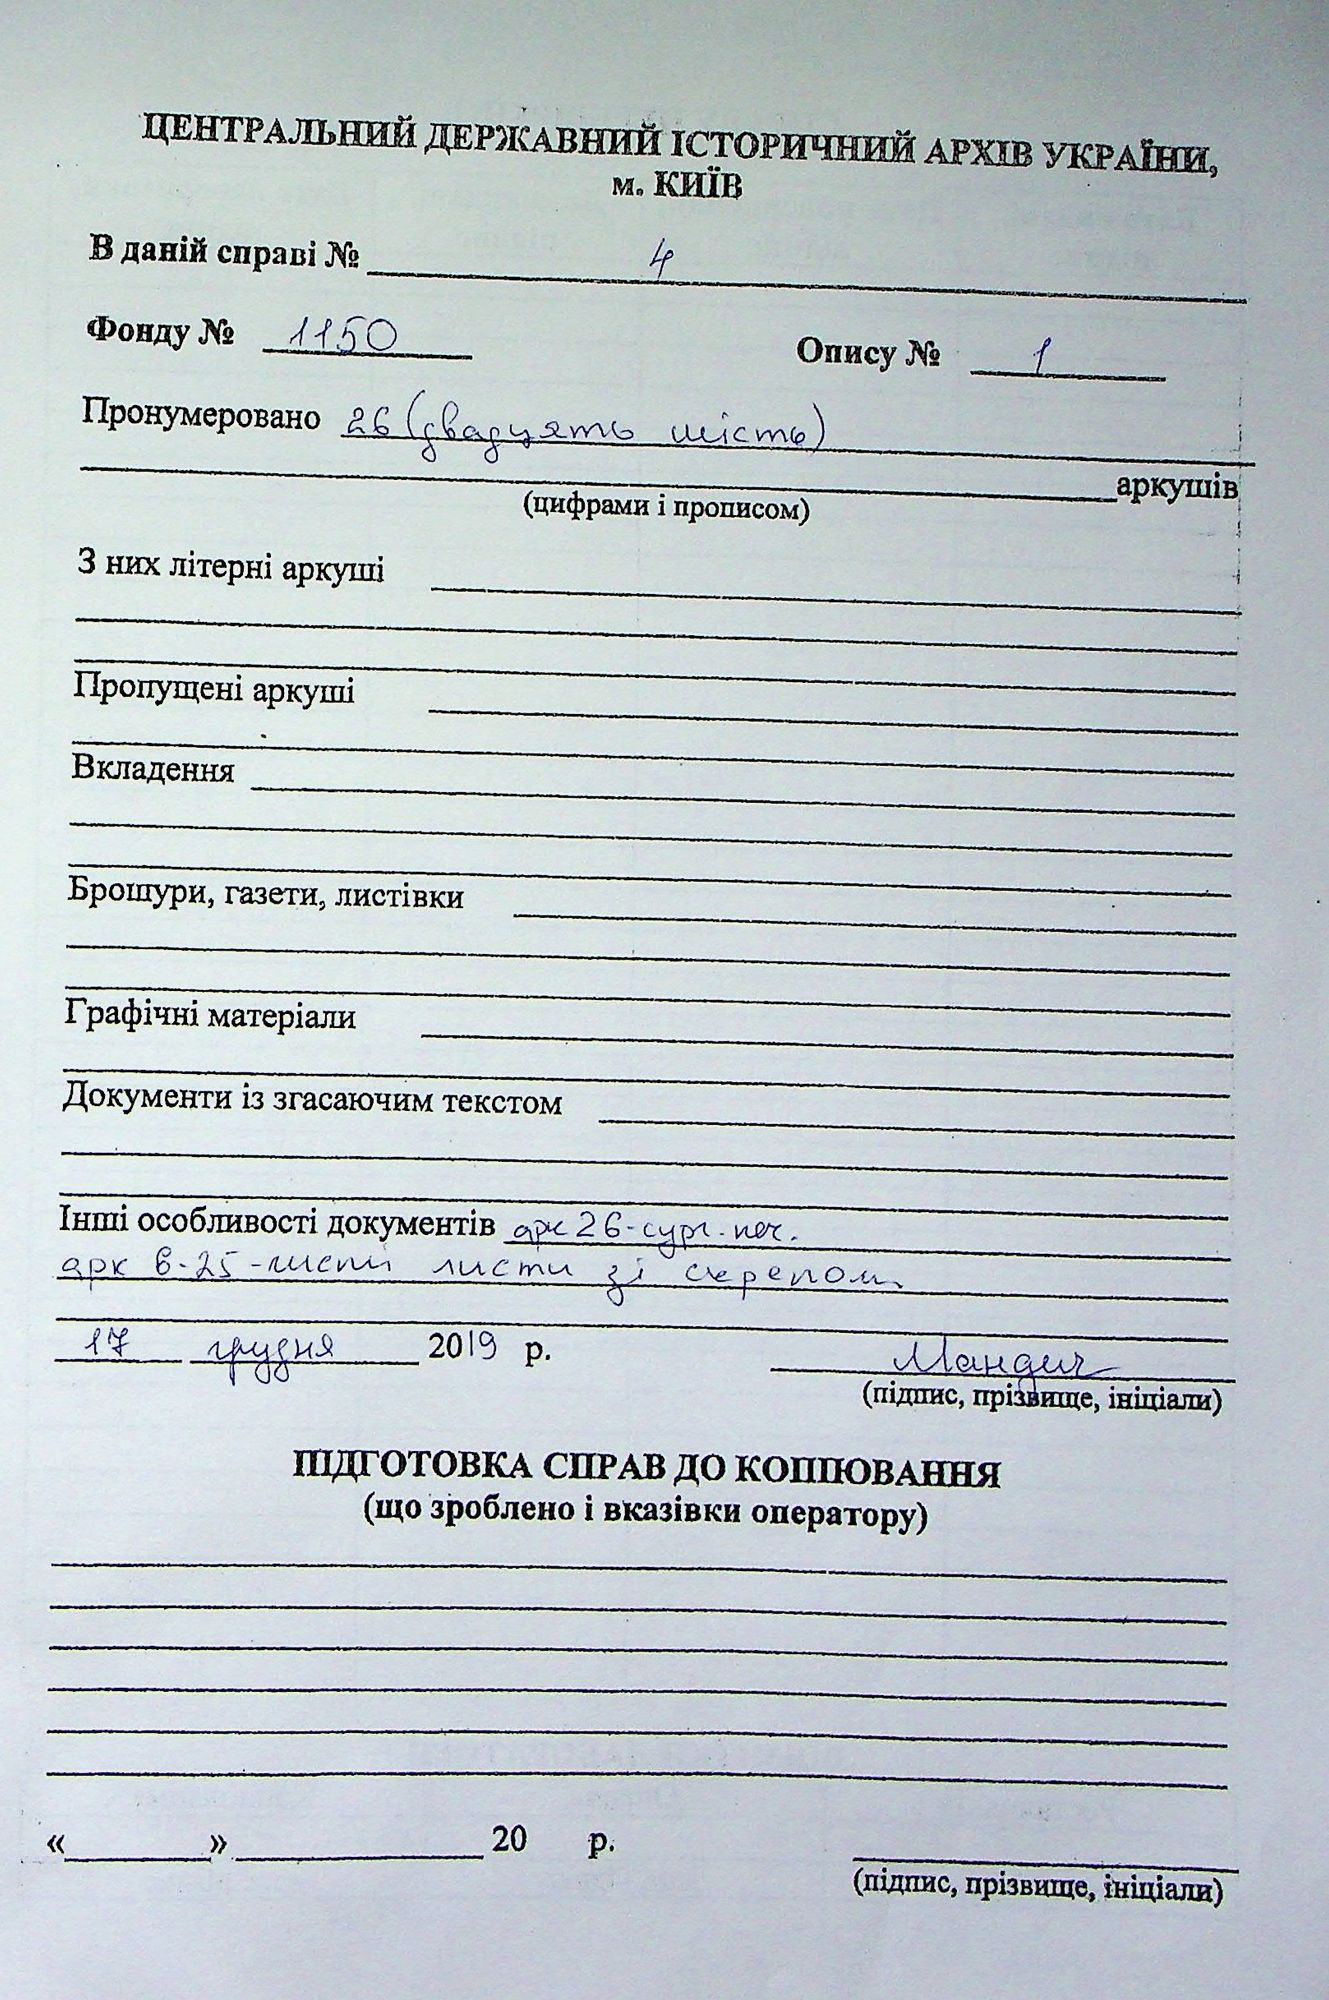 ЦЕНТРАЛЬНИЙ ДЕРЖАВНИЙ ІСТОРИЧНИЙ АРХІВ УКРАЇНИ,
м. КИЇВ
В даній справі № 4
Фонду № 1150 Опису № 1
Пронумеровано 26 (двадцять шість)
аркушів
(цифрами і прописом)
З них літерні аркуші
Пропущені аркуші
Вкладення
Брошури, газети, листівки
Графічні матеріали
Документи із згасаючим текстом
Інші особливості документів арк 26-сург. печ.
арк 6-25- листи зі скрепом
17 грудня 2019 р. Мандич
(підпис, прізвище, ініціали)
ПІДГОТОВКА СПРАВ ДО КОПІЮВАННЯ
(що зроблено і вказівки оператору)
« » 20 р.
(підпис, прізвище, ініціали)